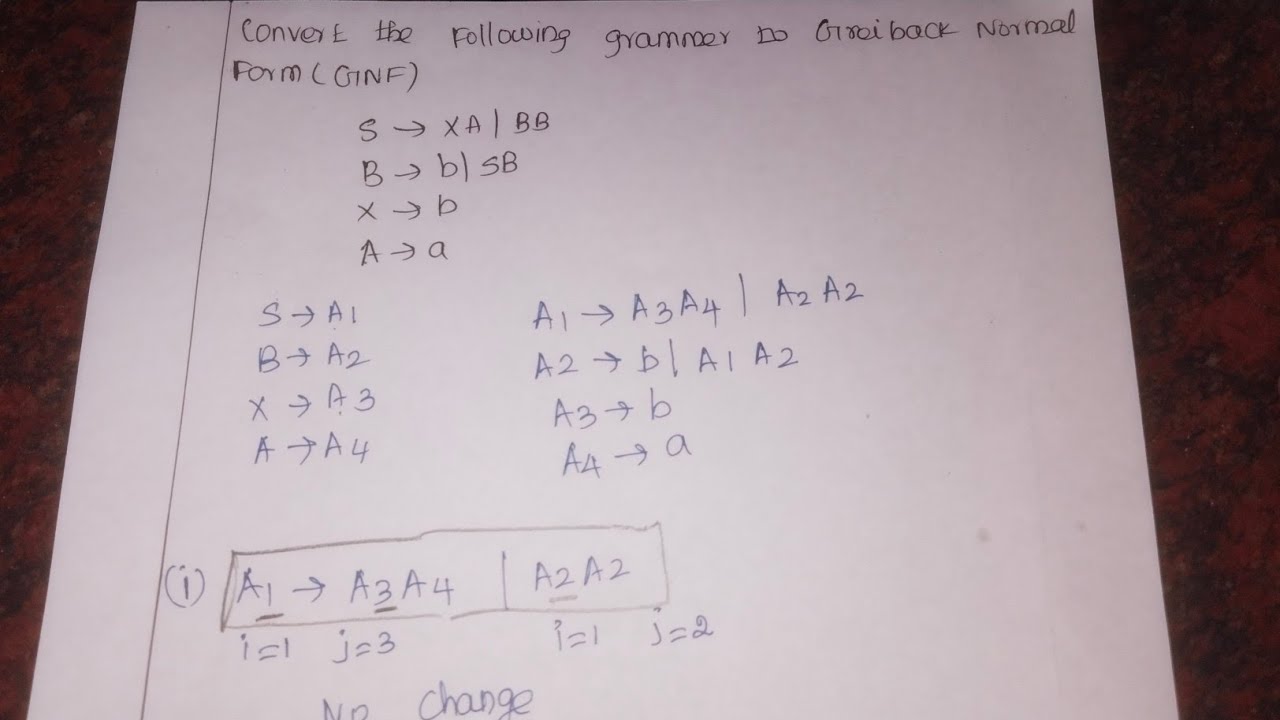 Convert the Following grammer to Greiback Normal
Form (GNF)
S → XA | BB
B → b | SB
X → b
A → a
S → A1
B → A2
X → A3
A → A4
A1 → A3 A4 | A2 A2
A2 → b | A1 A2
A3 → b
A4 → a
(i) A1 → A3 A4 | A2 A2
i=1 j=3 i=1 j=2
No change